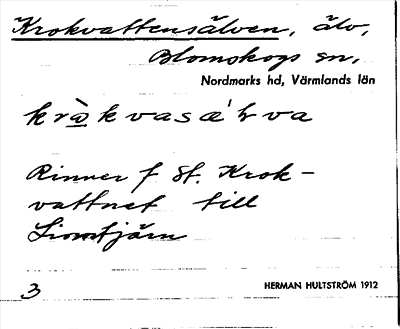 Krokvattensälven, älv,
Blomskogs sn,
Nordmarks hd, Värmlands län
krò̤kvasæ̀lva
Rinner f St. Krok-
vattnet till
3
HERMAN HULTSTRÖM 1912